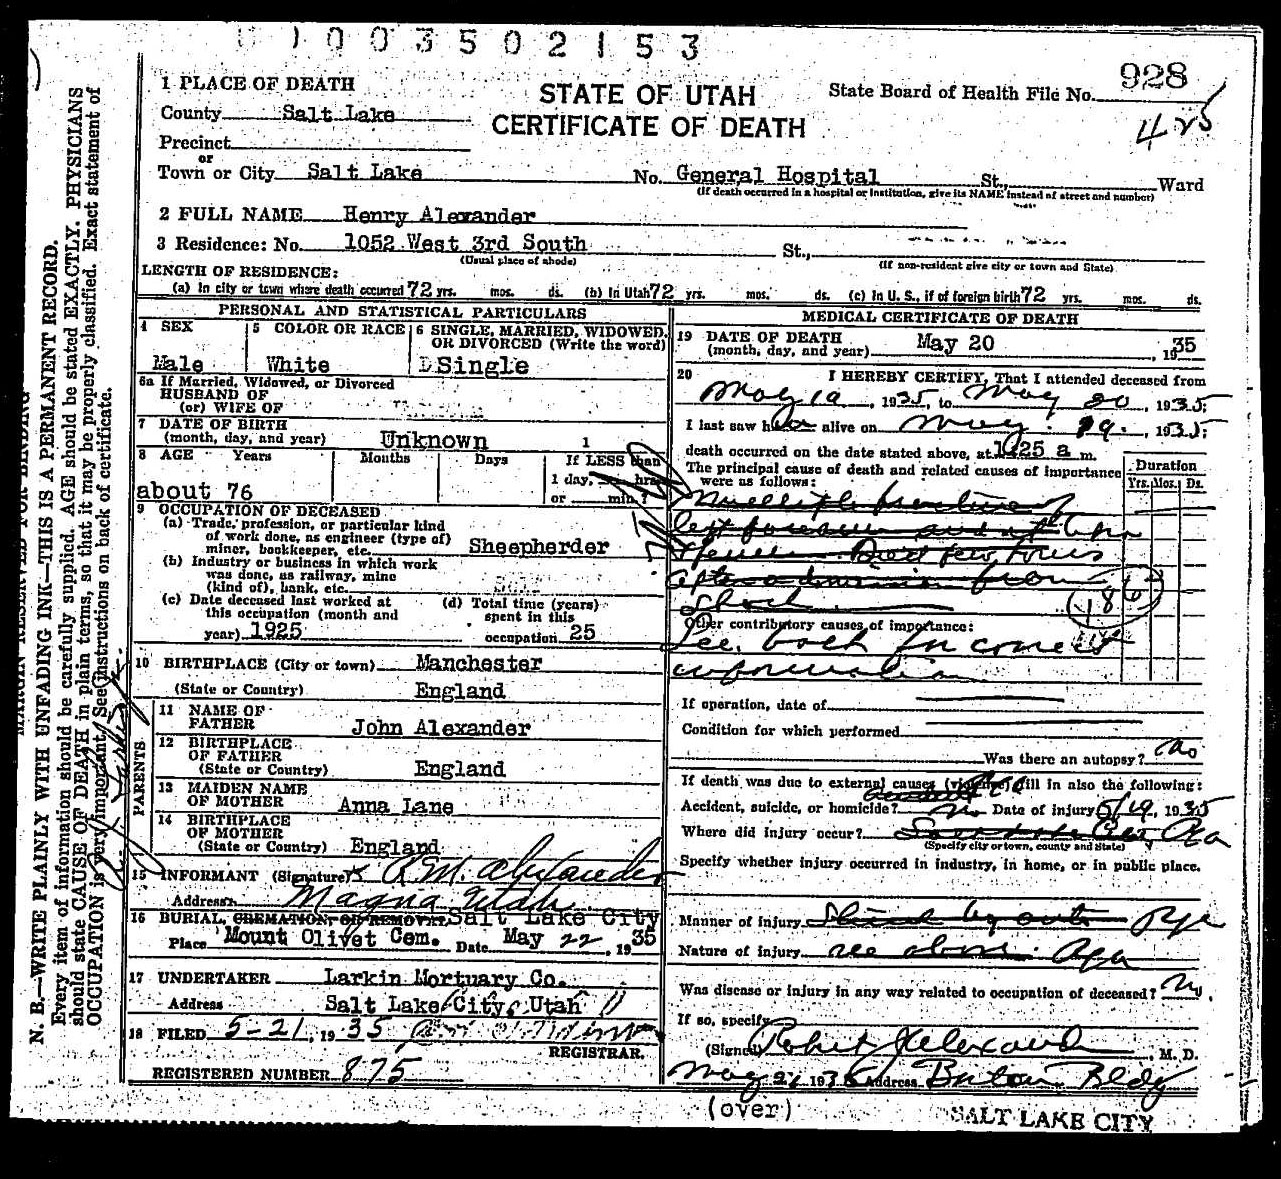 003502153
928
425
1 PLACE OF DEATH
STATE OF UTAH
CERTIFICATE OF DEATH
State Board of Health File No.
County Salt Lake
Precinct
or
Town or City Salt Lake No. General Hospital St., Ward
(If death occurred in a hospital or institution, give its NAME instead of street and number)
2 FULL NAME Henry Alexander
3 Residence: No. 1052 West 3rd South St.,
(Usual place of abode) (If non-resident give city or town and State)
LENGTH OF RESIDENCE:
(a) In city or town where death occurred 72 yrs. mos. ds. (b) In Utah 72 yrs. mos. ds. (c) In U. S., if of foreign birth 72 yrs. mos. ds.
PERSONAL AND STATISTICAL PARTICULARS
4 SEX 5 COLOR OR RACE 6 SINGLE, MARRIED, WIDOWED, OR DIVORCED (Write the word)
Male White Single
6a If Married, Widowed, or Divorced
HUSBAND OF
(or) WIFE OF
7 DATE OF BIRTH
(month, day, and year) Unknown 1
8 AGE Years Months Days If LESS than
1 day, hrs.
about 76 or min.?
9 OCCUPATION OF DECEASED
(a) Trade, profession, or particular kind
of work done, as engineer (type of)
miner, bookkeeper, etc. Sheepherder
(b) Industry or business in which work
was done, as railway, mine
(kind of), bank, etc.
(c) Date deceased last worked at (d) Total time (years)
this occupation (month and spent in this
year) 1925 occupation 25
10 BIRTHPLACE (City or town) Manchester
(State or Country) England
PARENTS
11 NAME OF
FATHER John Alexander
12 BIRTHPLACE
OF FATHER
(State or Country) England
13 MAIDEN NAME
OF MOTHER Anna Lane
14 BIRTHPLACE
OF MOTHER
(State or Country) England
15 INFORMANT (Signature) R.M. Alexander
Address Magna Utah
16 BURIAL, CREMATION, OR REMOVAL Salt Lake City
Place Mount Olivet Cem. Date May 22, 1935
17 UNDERTAKER Larkin Mortuary Co.
Address Salt Lake City, Utah
18 FILED 5-21, 1935
REGISTRAR.
REGISTERED NUMBER 875
MEDICAL CERTIFICATE OF DEATH
19 DATE OF DEATH May 20
(month, day, and year) , 1935
20 I HEREBY CERTIFY, That I attended deceased from
May 19, 1935, to May 20, 1935;
I last saw him alive on May 19, 1935;
death occurred on the date stated above, at 1025 a m.
The principal cause of death and related causes of importance
were as follows:
Duration
Yrs. Mos. Ds.
Multiple fracture of
left forearm and
Died few hours
after admission from
Shock
186
Other contributory causes of importance:
See back for correct
information
If operation, date of
Condition for which performed
Was there an autopsy? No
If death was due to external causes (violence) fill in also the following:
Accident, suicide, or homicide? No Date of injury 5/19, 1935
Where did injury occur? Salt Lake City
(Specify city or town, county and State)
Specify whether injury occurred in industry, in home, or in public place.
Manner of injury Struck by auto
Nature of injury see above
Was disease or injury in any way related to occupation of deceased? No.
If so, specify
(Signed) Robert Alexander, M. D.
May 21 1935 Address Boston Bldg
(over)
SALT LAKE CITY
MARGIN RESERVED FOR BINDING
N. B.—WRITE PLAINLY WITH UNFADING INK—THIS IS A PERMANENT RECORD.
Every item of information should be carefully supplied. AGE should be stated EXACTLY. PHYSICIANS
should state CAUSE OF DEATH in plain terms, so that it may be properly classified. Exact statement of
OCCUPATION is very important. See instructions on back of certificate.